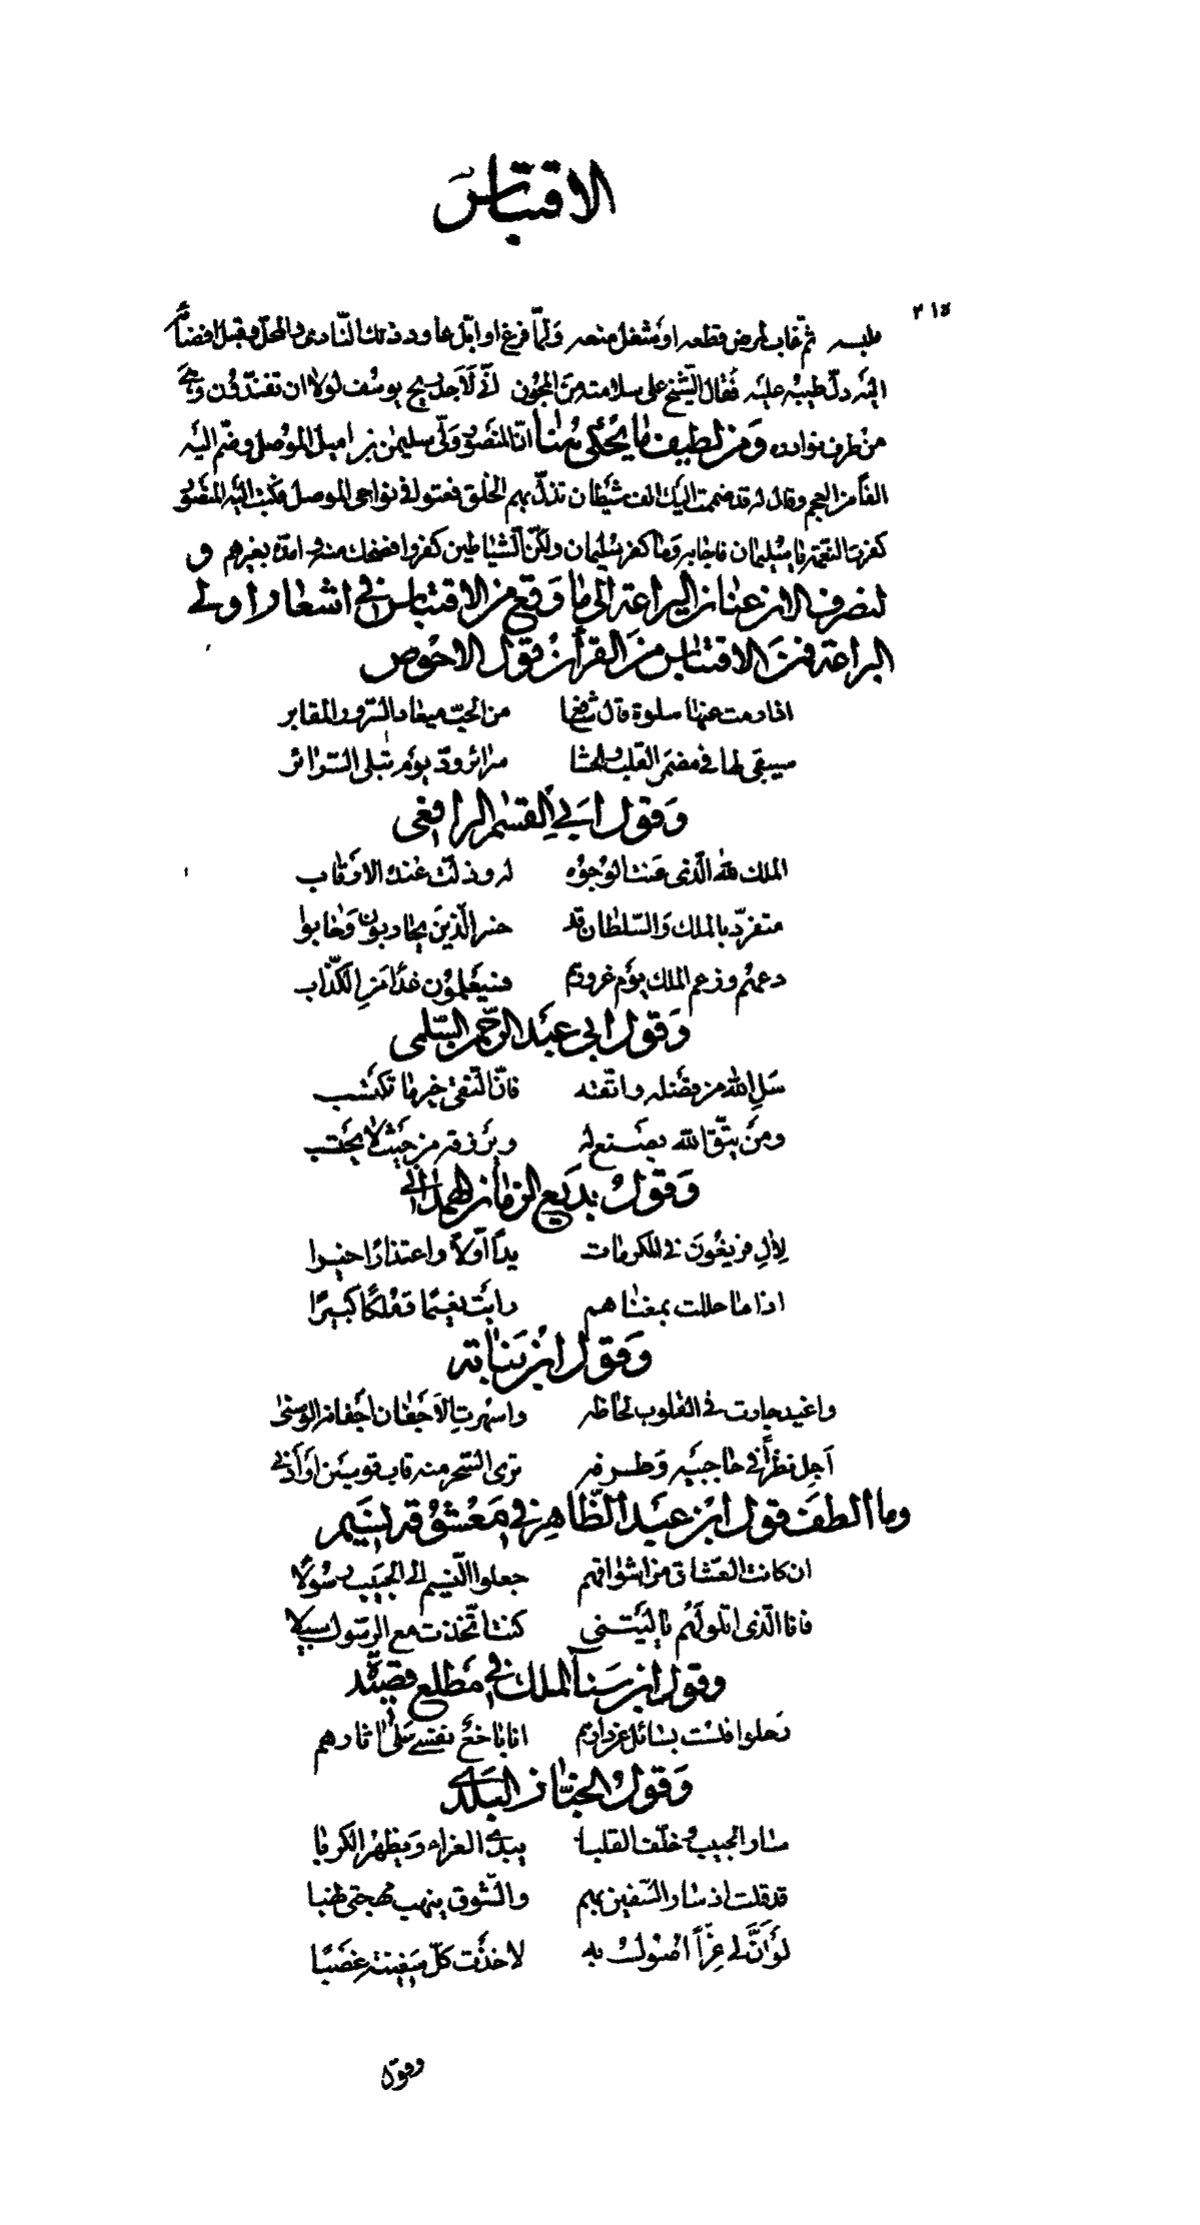 الاقتباس
٢١٥
عليه ثم غاب لمرض قطعه او شغل منعه ولما فرغ او ابل عاود ذلك النادى والمحل وقبل افضائه
اليه دل طيبه عليه فقال الشيخ على سلامته من المجون انى لاجد ريح يوسف لولا ان تفندون وهى
من طرف نوادره ومن لطيف ما يحكى هنا ان المنصور ولى سليمن بن راميل الموصل وضم اليه
الفا من العجم وقال له قد ضممت اليك الف شيطان تذل بهم الخلق فعتوا فى نواحى الموصل فكتب اليه المنصور
كفرت النعمة يا سليمان فاجابه وما كفر سليمان ولكن الشياطين كفروا فضحك منه وامده بغيرهم و
لنصرف الان عنان اليراعة الى ما وقع من الاقتباس فى اشعار اولى
البراعة فمن الاقتباس من القرآن قول الاحوص
اذا رمت عنها سلوة قال شافع من الحب ميعاد السرور المقابر
سيبقى لها فى مضمر القلب والحشا سرائر ود يوم تبلى السرائر
وقول ابى القسم الرافعى
الملك لله الذى عنت الوجوه له وذلت عنده الارباب
متفرد بالملك والسلطان قد خسر الذين يحاربون وخابوا
دعهم وزعم الملك يوم غرورهم فسيعلمون غدا من الكذاب
وقول ابى عبد الرحمن السلمى
سل الله من فضله واتقه فان التقى خير ما تكتسب
ومن يتق الله يصنع له ويرزقه من حيث لا يحتسب
وقول بديع الزمان الهمدانى
لآل فريغون فى المكرمات يدا اولا واعتذارا اخيرا
اذا ما حللت بمغناهم رايت نعيما وملكا كبيرا
وقول ابن نباته
واغيد جارت فى القلوب لحاظه واسهرت الاجفان اجفانه الوسنى
اجل نظرا فى حاجبيه وطرفه ترى السحر منه قاب قوسين او ادنى
وما الطف قول ابن عبد الظاهر فى معشوقه نسيم
ان كانت العشاق من اشواقهم جعلوا النسيم الى الحبيب رسولا
فانا الذى اتلو لهم يا ليتنى كنت اتخذت مع الرسول سبيلا
وقول ابن سنا الملك فى مطلع قصيدة
رحلوا فلست بسائل عن دارهم انا باخع نفسى على اثارهم
وقول الخباز البلدى
سار الحبيب وخلف القلبا يبدى العزاء ويظهر الكربا
قد قلت اذ سار السفين بهم والشوق ينهب مهجتى نهبا
لو ان لى عزا اصول به لاخذت كل سفينة غصبا
وقول